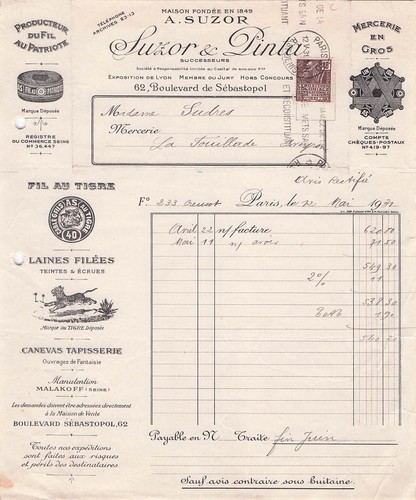 PRODUCTEUR
DU FIL
AU PATRIOTE
Marque Déposée
REGISTRE
DU COMMERCE SEINE
Nº 36.447
TÉLÉPHONE
ARCHIVES 53-13
MAISON FONDÉE EN 1849
A. SUZOR
Suzor & Pintat
SUCCESSEURS
EXPOSITION DE LYON MEMBRE DU JURY HORS CONCOURS
62, Boulevard de Sébastopol
PARIS
MERCERIE
EN
GROS
Marque Déposée
COMPTE
CHÈQUES-POSTAUX
Nº 419-97
Madame Sudres
Mercerie
La Fouillade Aveyron
Avis Rectifié
FIL AU TIGRE
40
LAINES FILÉES
TEINTES & ÉCRUES
Marque au TIGRE Déposée
CANEVAS TAPISSERIE
Ouvrages de Fantaisie
Manutention
MALAKOFF (SEINE)
Les demandes doivent être adressées directement
à la Maison de Vente
BOULEVARD SÉBASTOPOL, 62
Toutes nos expéditions
sont faites aux risques
et périls des destinataires
Fº 233 Creusot Paris, le 12 Mai 1931
Avril 22 n/ facture 620.80
Mai 11 n/ avoir 71.50
549.30
2%
538.30
1.90
540.20
Payable en N. Traite fin Juin
Sauf avis contraire sous huitaine.